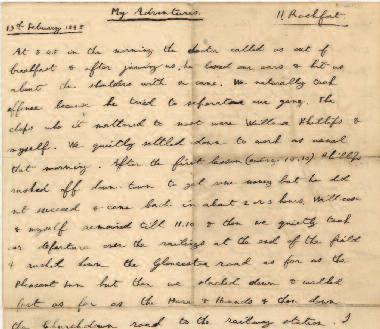 My Adventures. H Rochfort
13th February 1898
At 8 45 in the morning the doctor called us out of
breakfast & after jawing us, he boxed our ears & hit us
about the shoulders with a cane. We naturally took
offence because he tried to separate our gang. The
chaps who it mattered to most were Phillips &
myself. We quietly settled down to work as usual
that morning. After the first lesson Phillips
rushed off down town to get some money but he did
not succeed & came back in about 2 or 3 hours.
& myself remained till 11.10 & then we quietly took
our departure over the railings at the end of the field
& rushed down the Gloucester road as far as the
Pheasant Inn but then we slacked down & walked
first as far as the Hare & Hounds & then down
the Churchdown road to the railway station. I